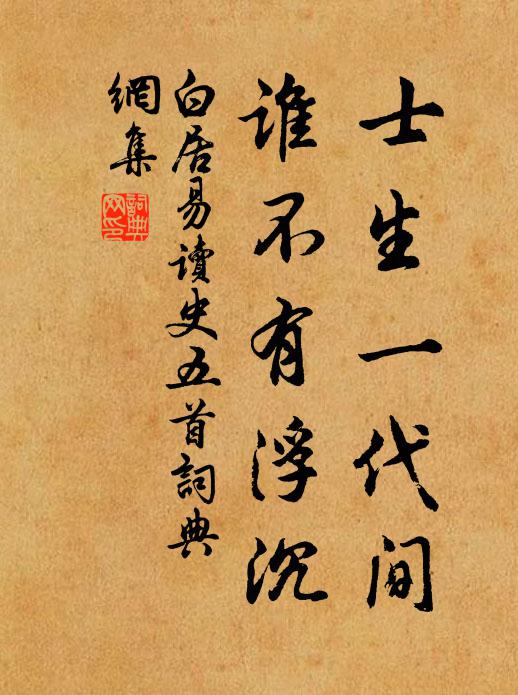 士生一代间
谁不有浮沉
白居易讀史五首詞典
網集
詞典网印